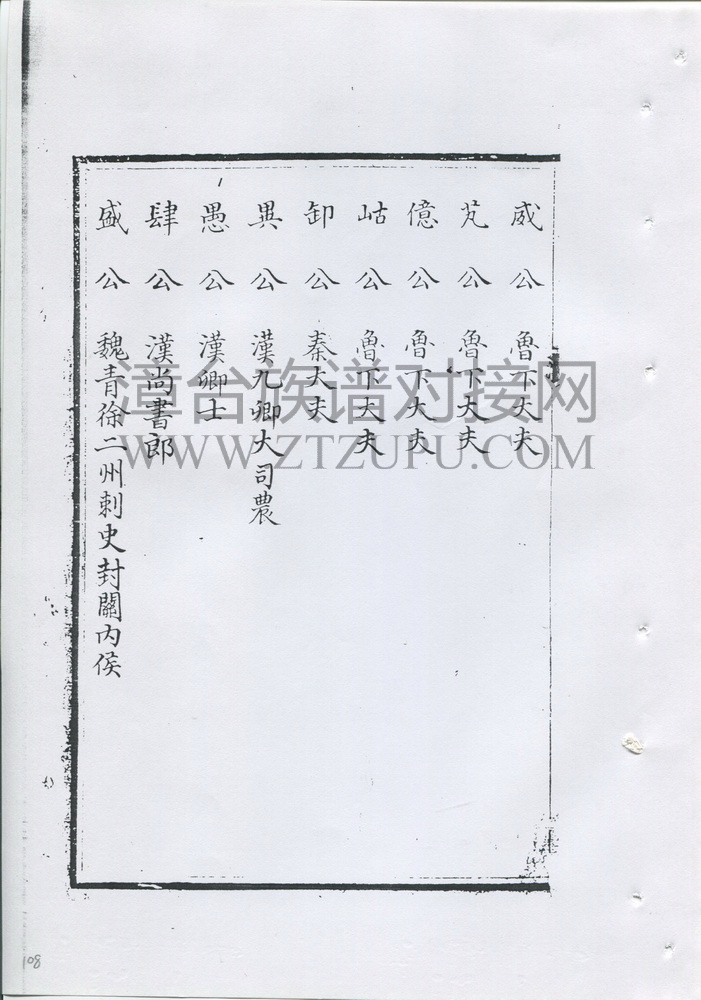 威公 魯下大夫
芃公 魯下大夫
億公 魯下大夫
岵公 魯下大夫
卸公 秦大夫
異公 漢九卿大司農
愚公 漢卿士
肆公 漢尚書郎
盛公 魏青徐二州刺史封關内侯
漳台族谱对接网
WWW.ZTZUPU.COM
108